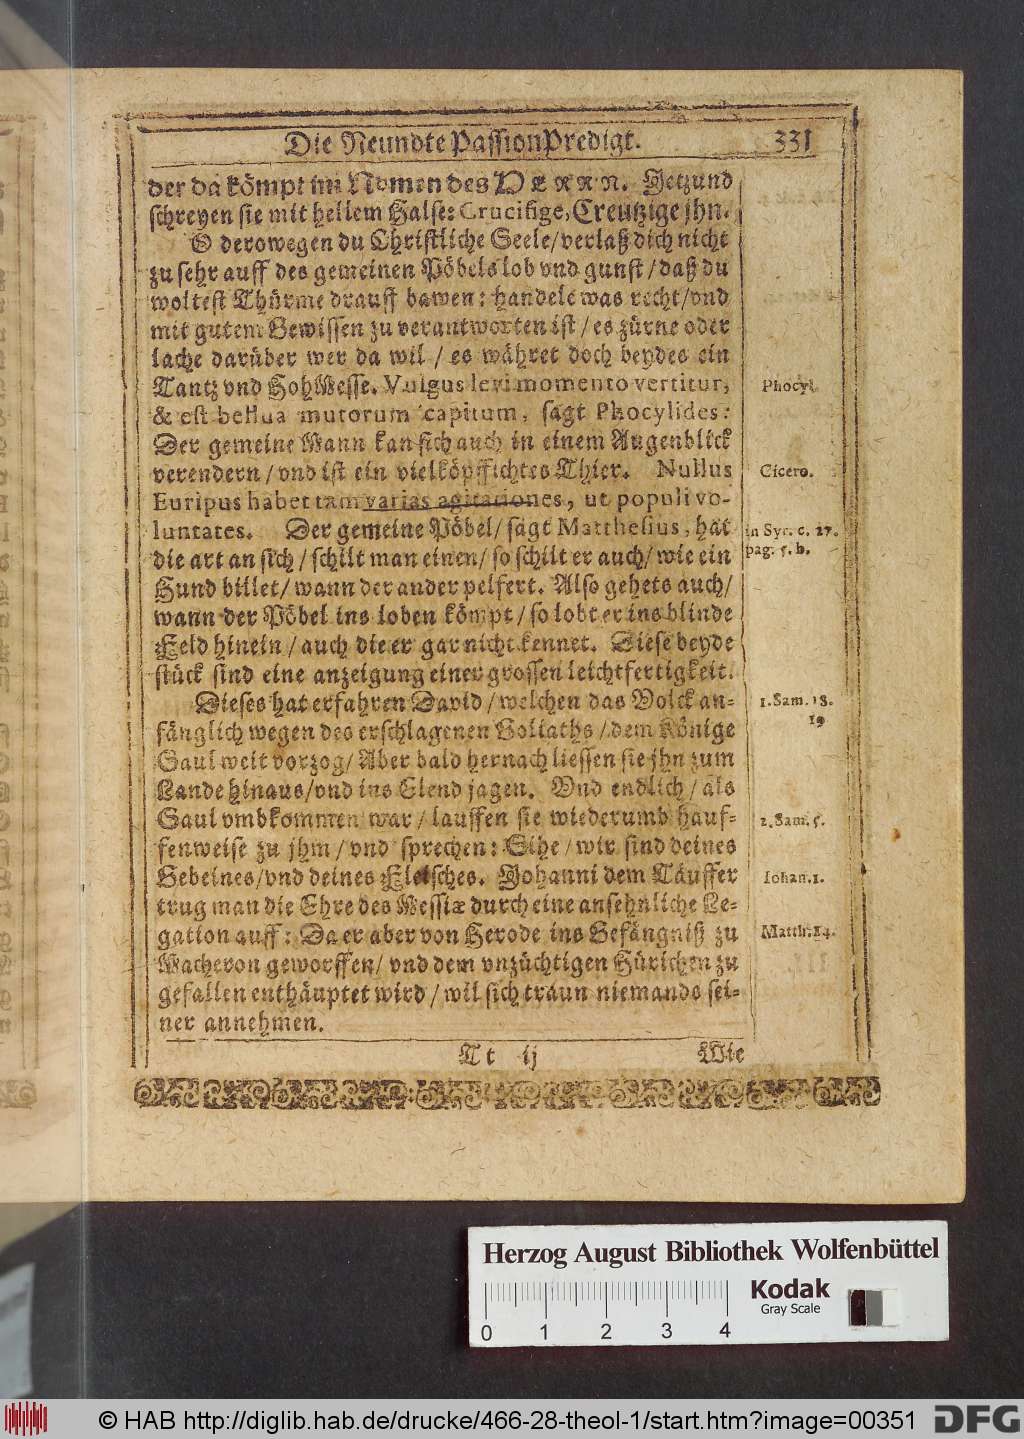 Die Neundte PassionPredigt. 331
der da kömpt im Nomen des HERRN. Jetzund
schreyen sie mit hellem Halse: Crucifige, Creutzige jhn.
O derowegen du Christliche Seele/verlaß dich nicht
zu sehr auff des gemeinen Pöbels lob vnd gunst/daß du
woltest Thürme drauff bawen: handele was recht/vnd
mit gutem Gewissen zu verantworten ist/es zürne oder
lache darüber wer da wil/es währet doch beydes ein
Tantz vnd HohMesse. Vulgus levi momento vertitur,
Phocyl.
& est bellua mutorum capitum, sagt Phocylides:
Der gemeine Mann kan sich auch in einem Augenblick
verendern/vnd ist ein vielköpffichtes Thier. Nullus
Cicero.
Euripus habet tam varias agitationes, ut populi vo-
luntates. Der gemeine Pöbel/sagt Matthesius, hat
in Syr. c. 27.
die art an sich/schilt man einen/so schilt er auch/wie ein
pag. 5. b.
Hund billet/wann der ander pelfert. Also gehets auch/
wann der Pöbel ins loben kömpt/so lobt er ins blinde
Feld hinein/auch die er gar nicht kennet. Diese beyde
stück sind eine anzeigung einer grossen leichtfertigkeit.
Dieses hat erfahren David/welchen das Volck an-
1. Sam. 18.
19
fänglich wegen des erschlagenen Goliaths/dem Könige
Saul weit vorzog/Aber bald hernach liessen sie jhn zum
Lande hinaus/vnd ins Elend jagen. Vnd endlich/als
Saul vmbkommen war/lauffen sie wiederumb hauf-
2. Sam. 5.
fenweise zu jhm/vnd sprechen: Sihe/wir sind deines
Gebeines/vnd deines Fleisches. Johanni dem Täuffer
Iohan. 1.
trug man die Ehre des Messiæ durch eine ansehnliche Le-
gation auff: Da er aber von Herode ins Gefängniß zu
Matth. 14.
Macheron geworffen/vnd dem vnzüchtigen Hürichen zu
gefallen enthäuptet wird/wil sich traun niemands sei-
ner annehmen.
Tt ij Wie
Herzog August Bibliothek Wolfenbüttel
Kodak
Gray Scale
0 1 2 3 4
© HAB http://diglib.hab.de/drucke/466-28-theol-1/start.htm?image=00351
DFG